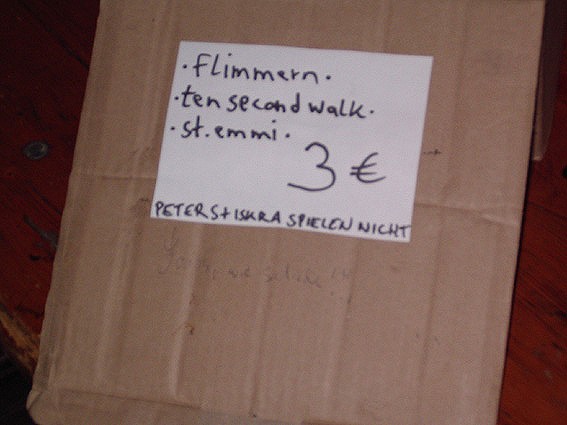 · flimmern ·
· ten second walk ·
· st. emmi ·
3 €
PETERS + ISKRA SPIELEN NICHT